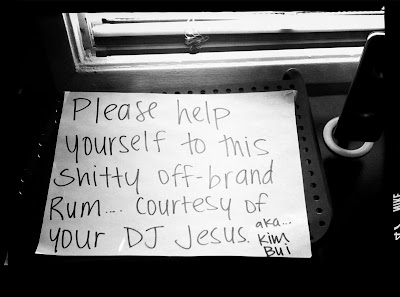 Please help
yourself to this
shitty off-brand
Rum.... Courtesy of
your DJ Jesus. aka...
Kim
Bui